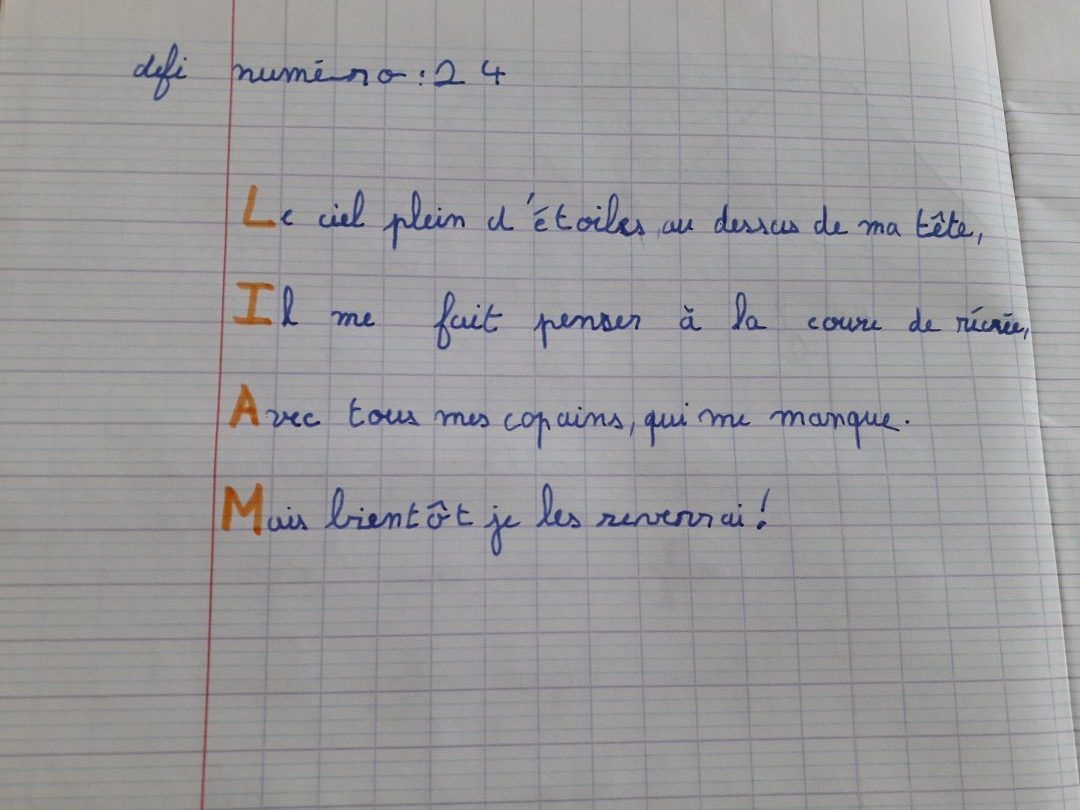 defi numéro : 24
Le ciel plein d'étoiles au dessus de ma tête,
Il me fait penser à la coure de récrée,
Avec tous mes copains, qui me manque.
Mais bientôt je les reverrai !